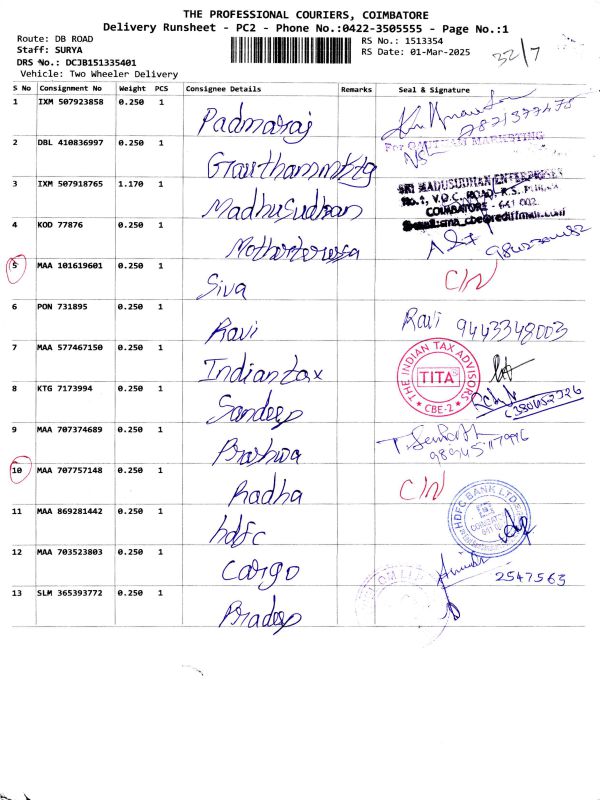 THE PROFESSIONAL COURIERS, COIMBATORE
Delivery Runsheet - PC2 - Phone No.:0422-3505555 - Page No.:1
Route: DB ROAD
Staff: SURYA
DRS No.: DCJB151335401
Vehicle: Two Wheeler Delivery
RS No.: 1513354
RS Date: 01-Mar-2025
32/7
S No Consignment No Weight PCS Consignee Details Remarks Seal & Signature
1 IXM 507923858 0.250 1 Padmaraj
2 DBL 410836997 0.250 1 Gauthammktg
For GAUTHAM MARKETING
3 IXM 507918765 1.170 1 Madhusudhan
SRI MADUSUDHAN ENTERPRISES
No.1, V.O.C. ROAD, R.S. PURAM
COIMBATORE - 641 002.
E-mail:sma_cbe@rediffmail.com
4 KOD 77876 0.250 1 Motherteressa
5 MAA 101619601 0.250 1 Siva C/N
6 PON 731895 0.250 1 Ravi Ravi 9443348003
7 MAA 577467150 0.250 1 Indiantax
THE INDIAN TAX ADVISORS
TITA
CBE-2
8 KTG 7173994 0.250 1 Sandeep
9 MAA 707374689 0.250 1 Brashwa
10 MAA 707757148 0.250 1 Radha C/N
11 MAA 869281442 0.250 1 hdfc
HDFC BANK LTD
12 MAA 703523803 0.250 1 Cargo 2547563
13 SLM 365393772 0.250 1 Pradeep